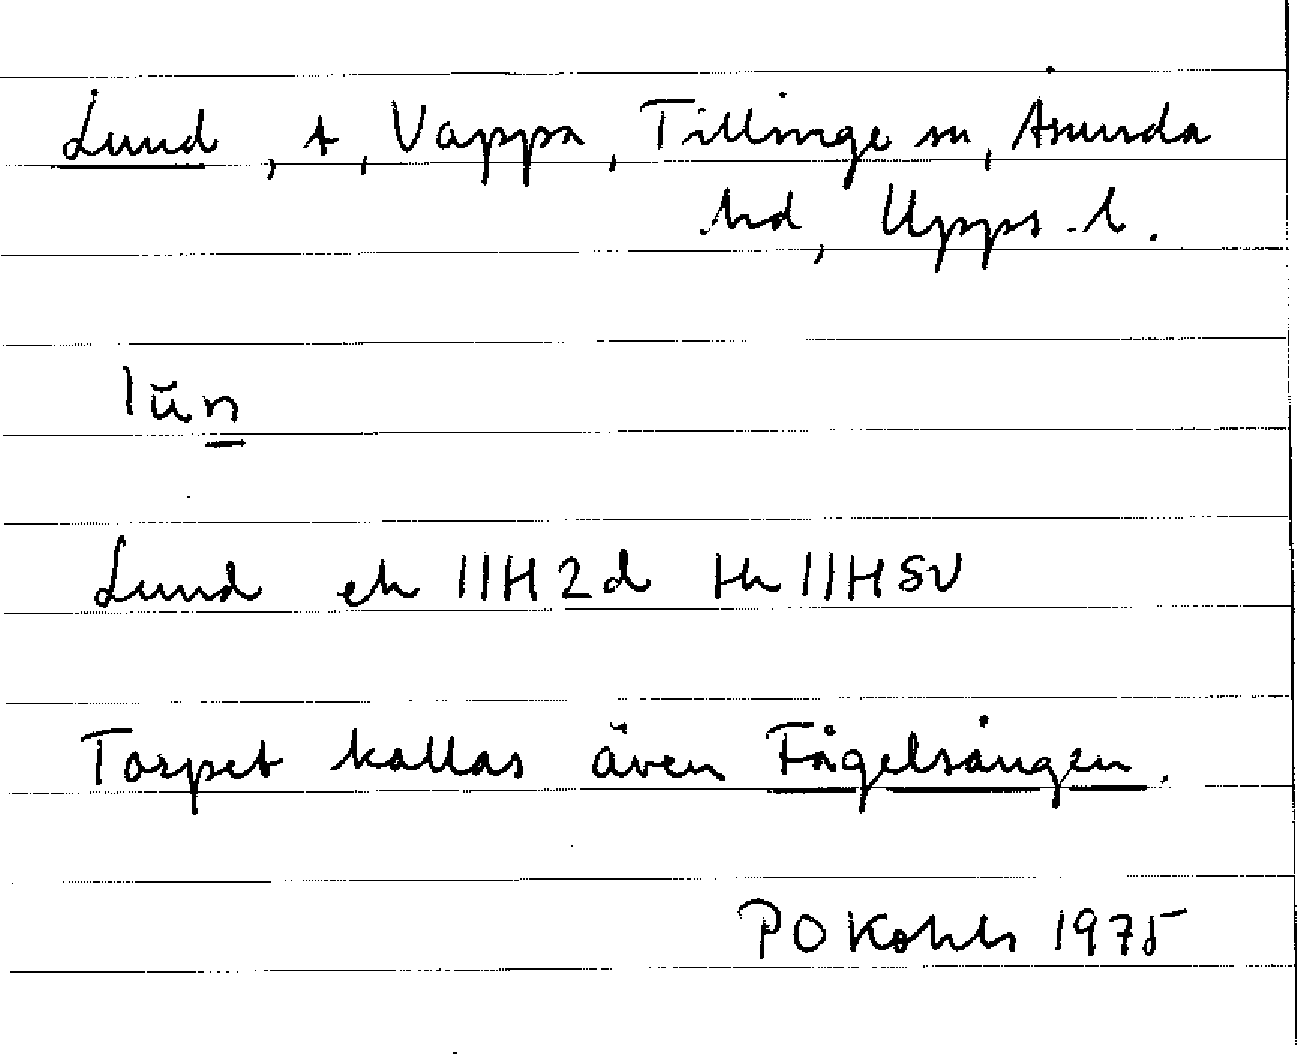 Lund, t, Vappa, Tillinge sn, Åsunda
hd, Upps. l.
lŭn
Lund ek 11H2d Hk 11HSV
Torpet kallas även Fågelsången.
PO Kohls 1975